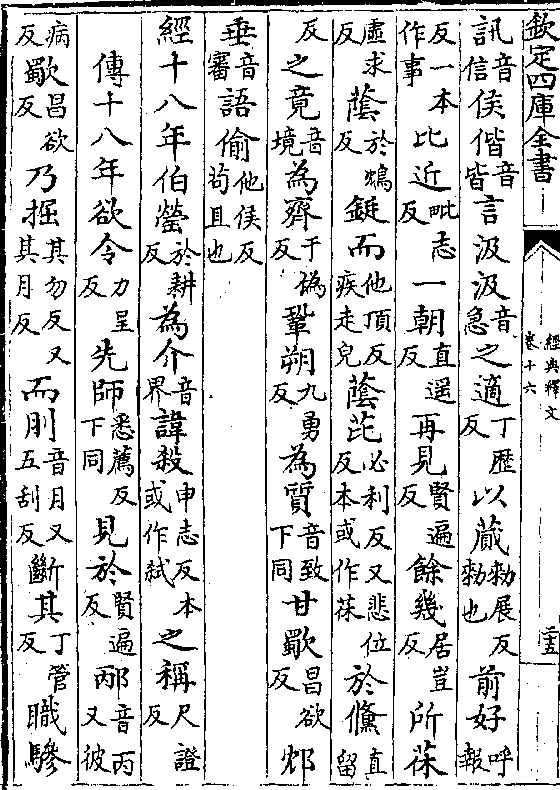 欽定四庫全書
經典釋文
卷十六
二十五
訊音信侯偕音皆言汲汲音急之適丁歴反以蕆勑展反勑也前好呼報
反一本作事比近毗志反一朝直遥反再見賢遍反餘幾居豈反所茠
虚求反䕃於鴆反鋌而他頂反疾走皃䕃芘必利反又悲位反本或作茠於儵直留
反之竟音境為齊于偽反鞏朔九勇反為質音致下同甘歜昌欲反䢵
垂音審語偷他侯反苟且也
經十八年伯罃於耕反為介音界諱殺申志反本或作弑之稱尺證反
傳十八年欲令力呈反先師悉薦反下同見於賢遍反邴音丙又彼
病反歜昌欲反乃掘其勿反又其月反而刖音月又五刮反斷其丁管反職驂